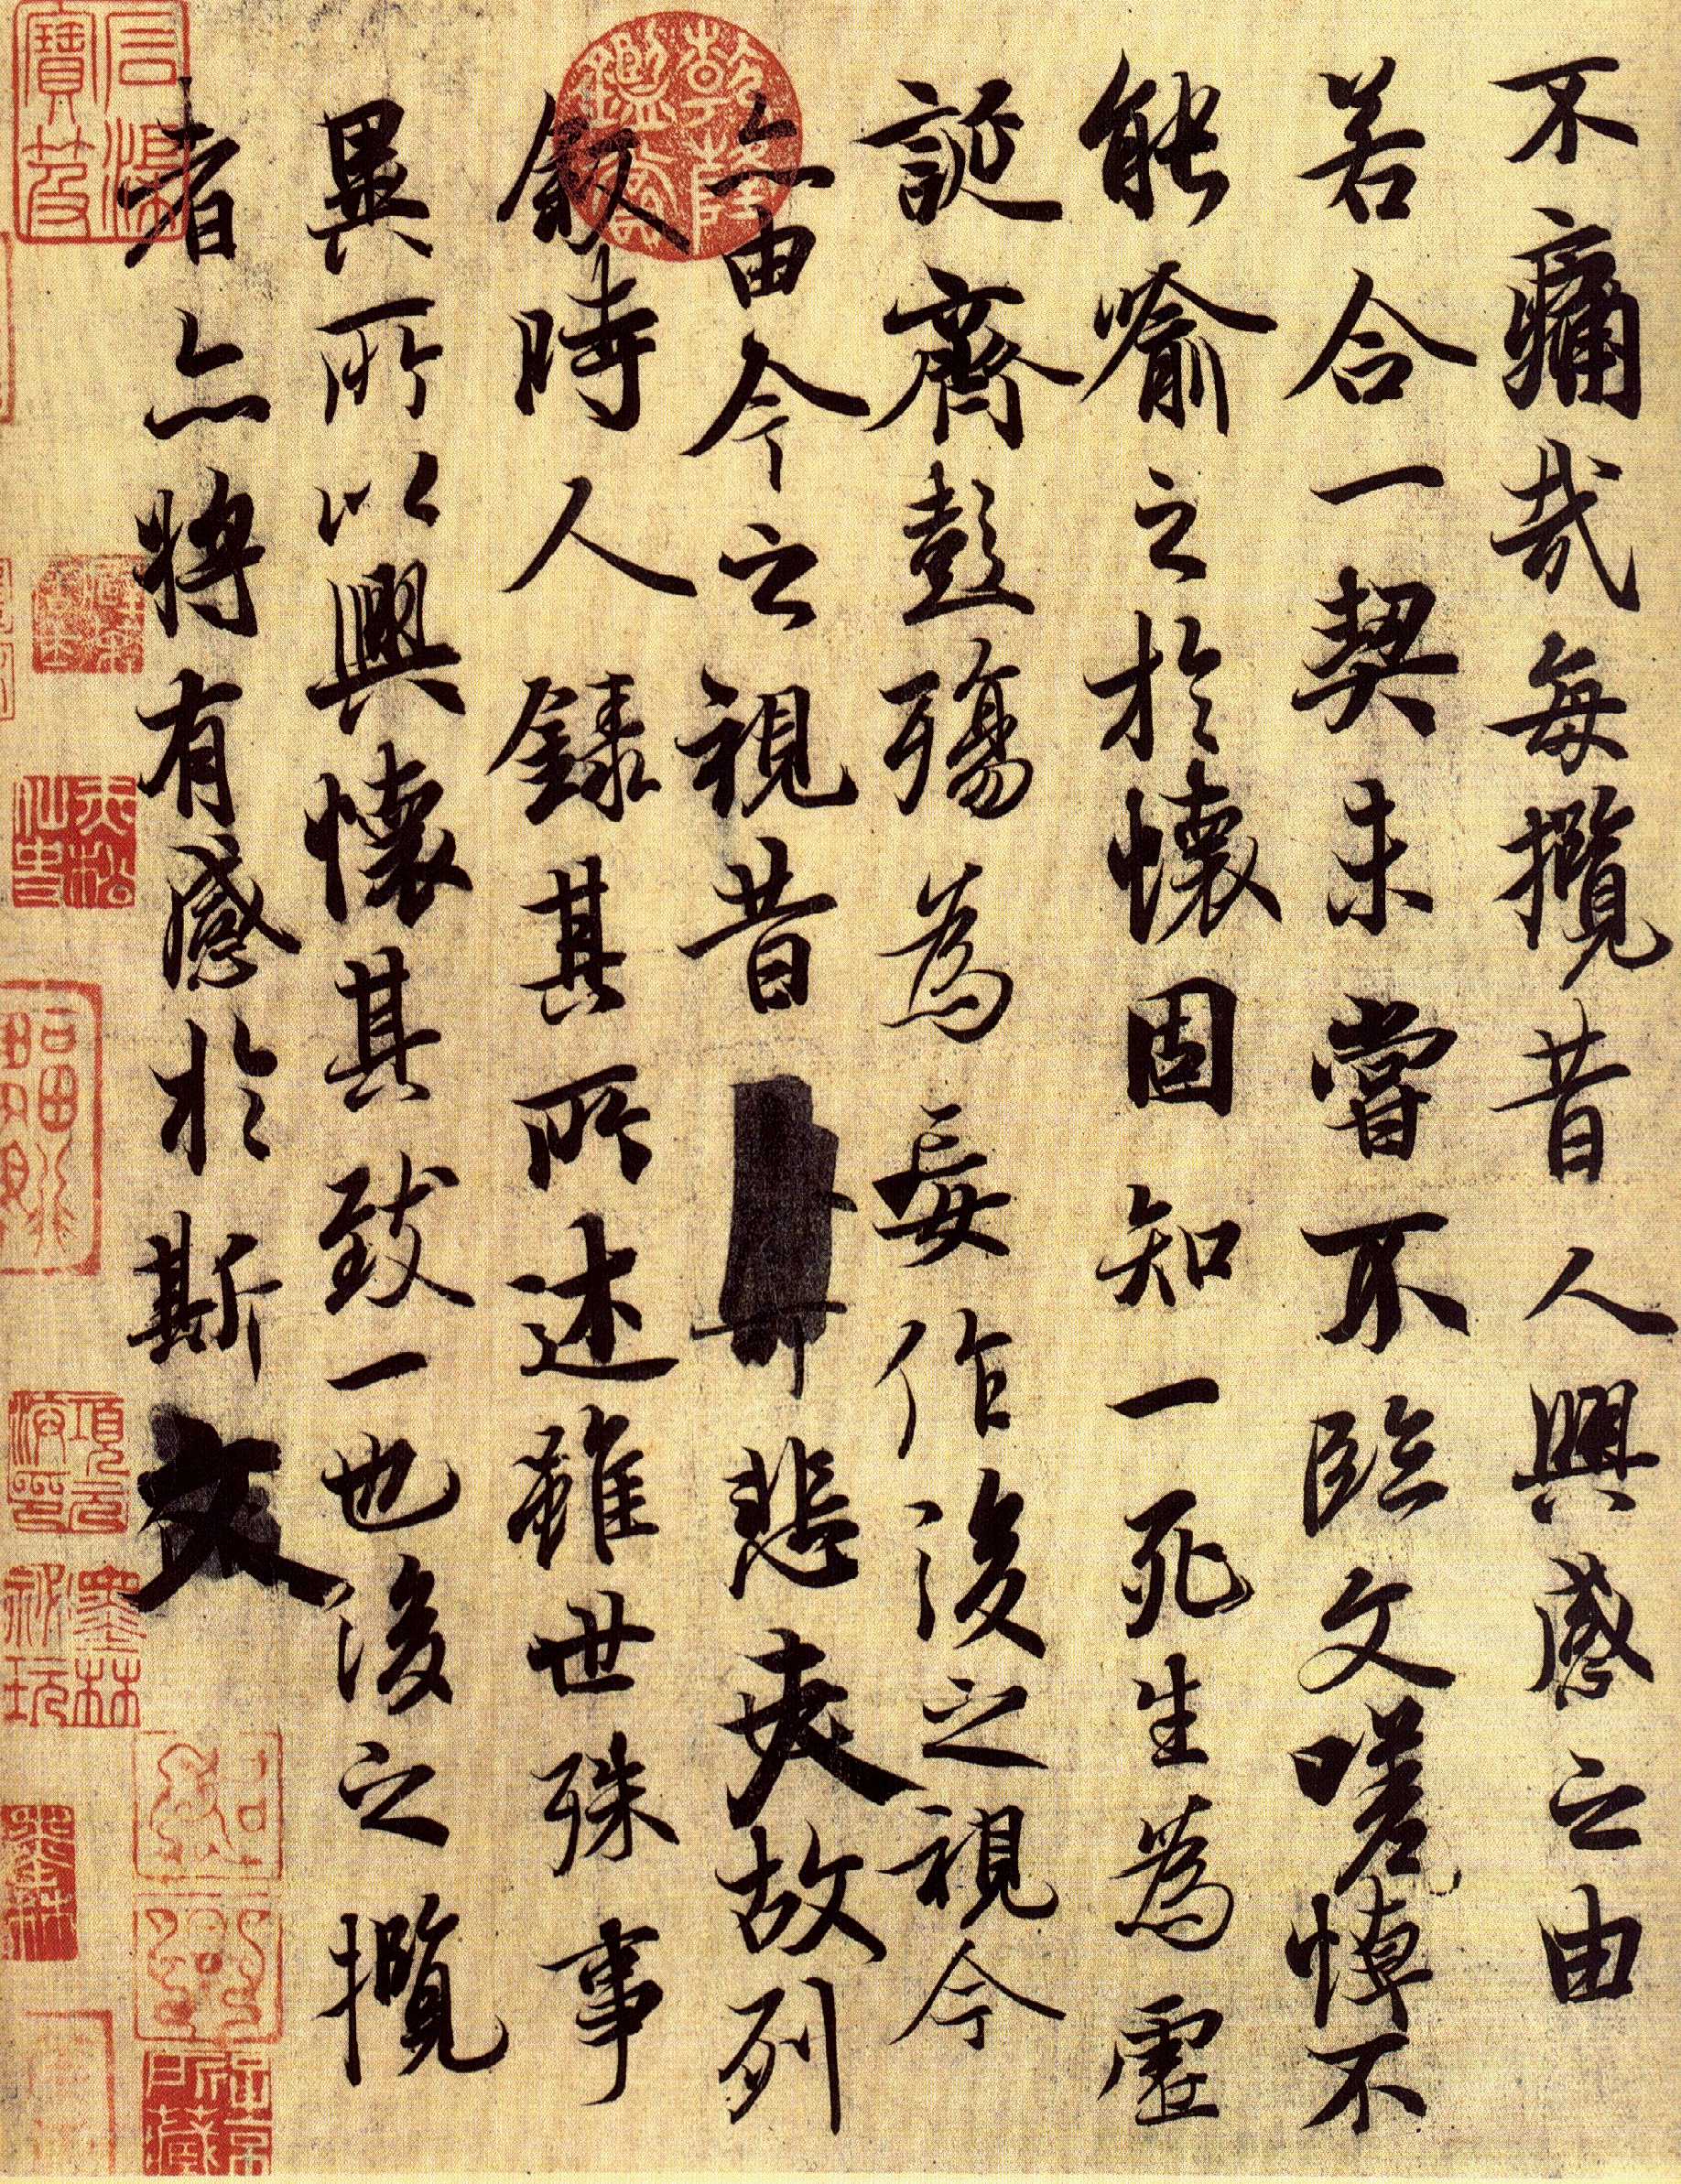 不痛哉每攬昔人興感之由
若合一契未嘗不臨文嗟悼不
能喻之於懷固知一死生為虛
誕齊彭殤為妄作後之視今
亦由今之視昔悲夫故列
敘時人錄其所述雖世殊事
異所以興懷其致一也後之攬
者亦將有感於斯文
乾隆鑑賞
石渠寶笈
項元汴印
墨林祕玩